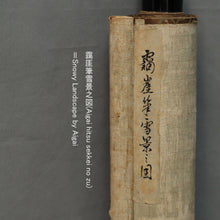 靄厓筆雪景之図(Aigai hitsu sekkei no zu)
=Snowy Landscape by Aigai
靄崖筆雪景之図